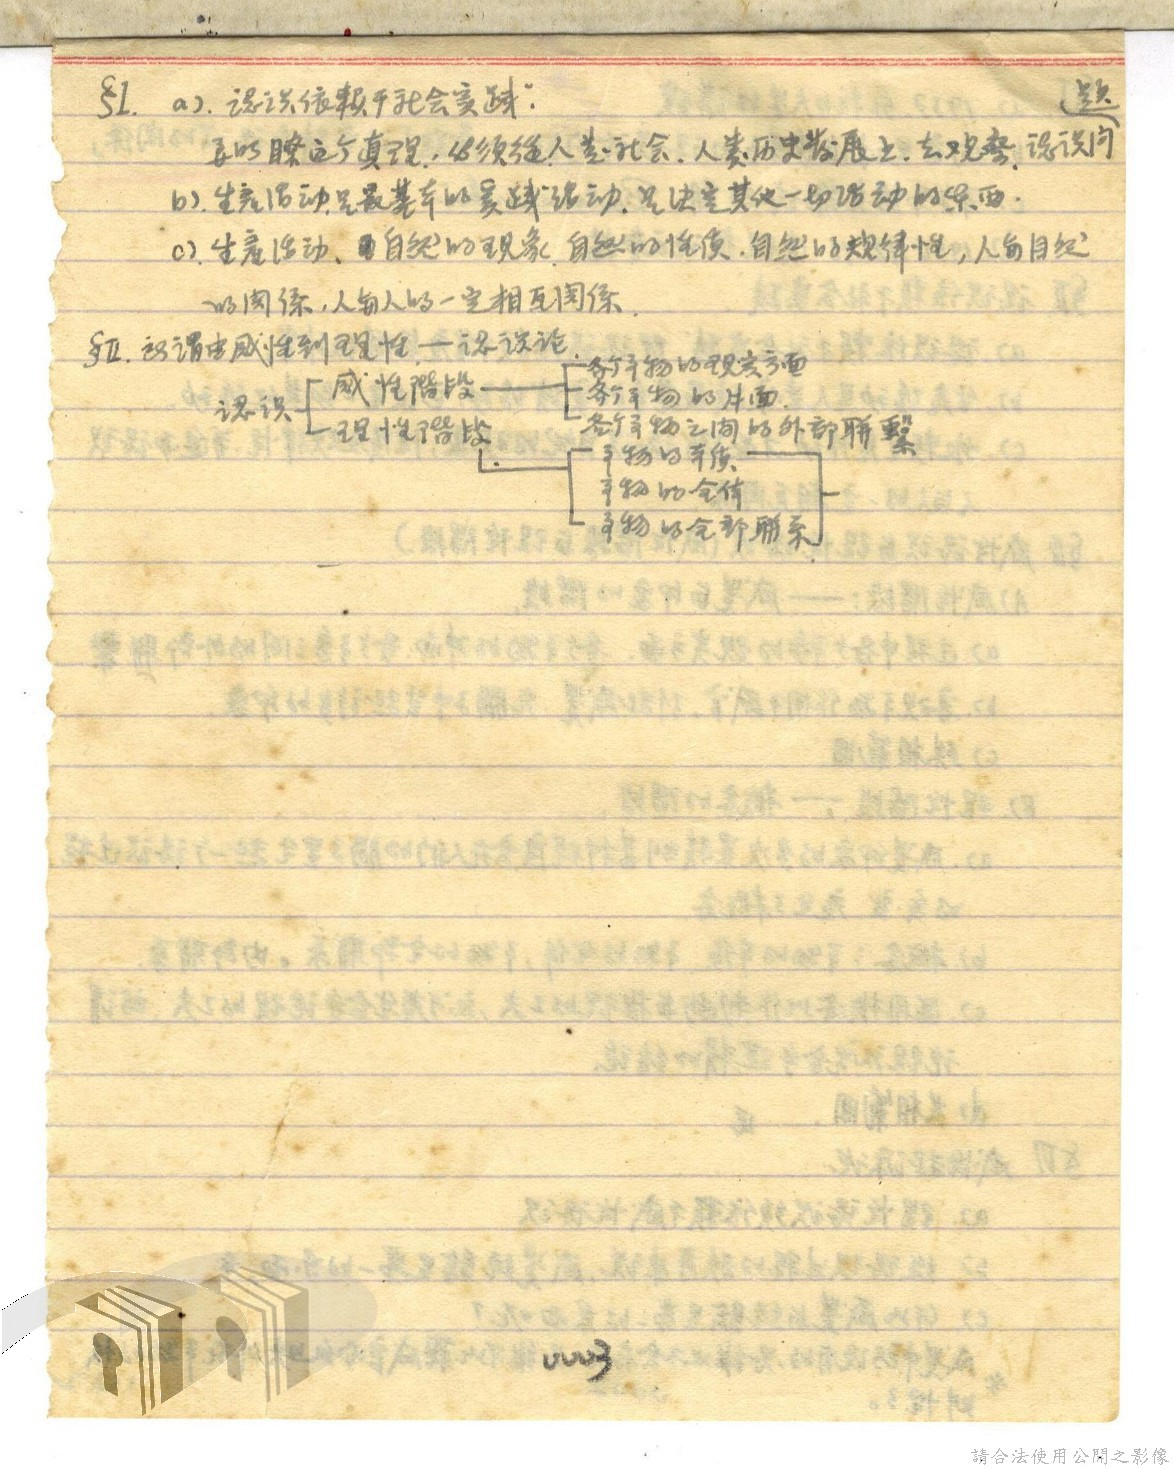 §I. a). 認识依赖于社会实践:
要明瞭这个真理,必须從人类社会.人类历史发展上.去观察.認识问
题
b). 生產活动是最基本的实践活动.是决定其他一切活动的东西.
c). 生產活动、自然的现象.自然的性质.自然的规律性,人与自然
的関係.人与人的一定相互関係.
§II. 所谓由感性到理性.—認识论.
認识
感性階段
各个事物的现实方面
各个事物的片面.
各个事物之间的外部聯繫
理性階段
事物的本质
事物的全体
事物的全部聯系
0003
請合法使用公開之影像